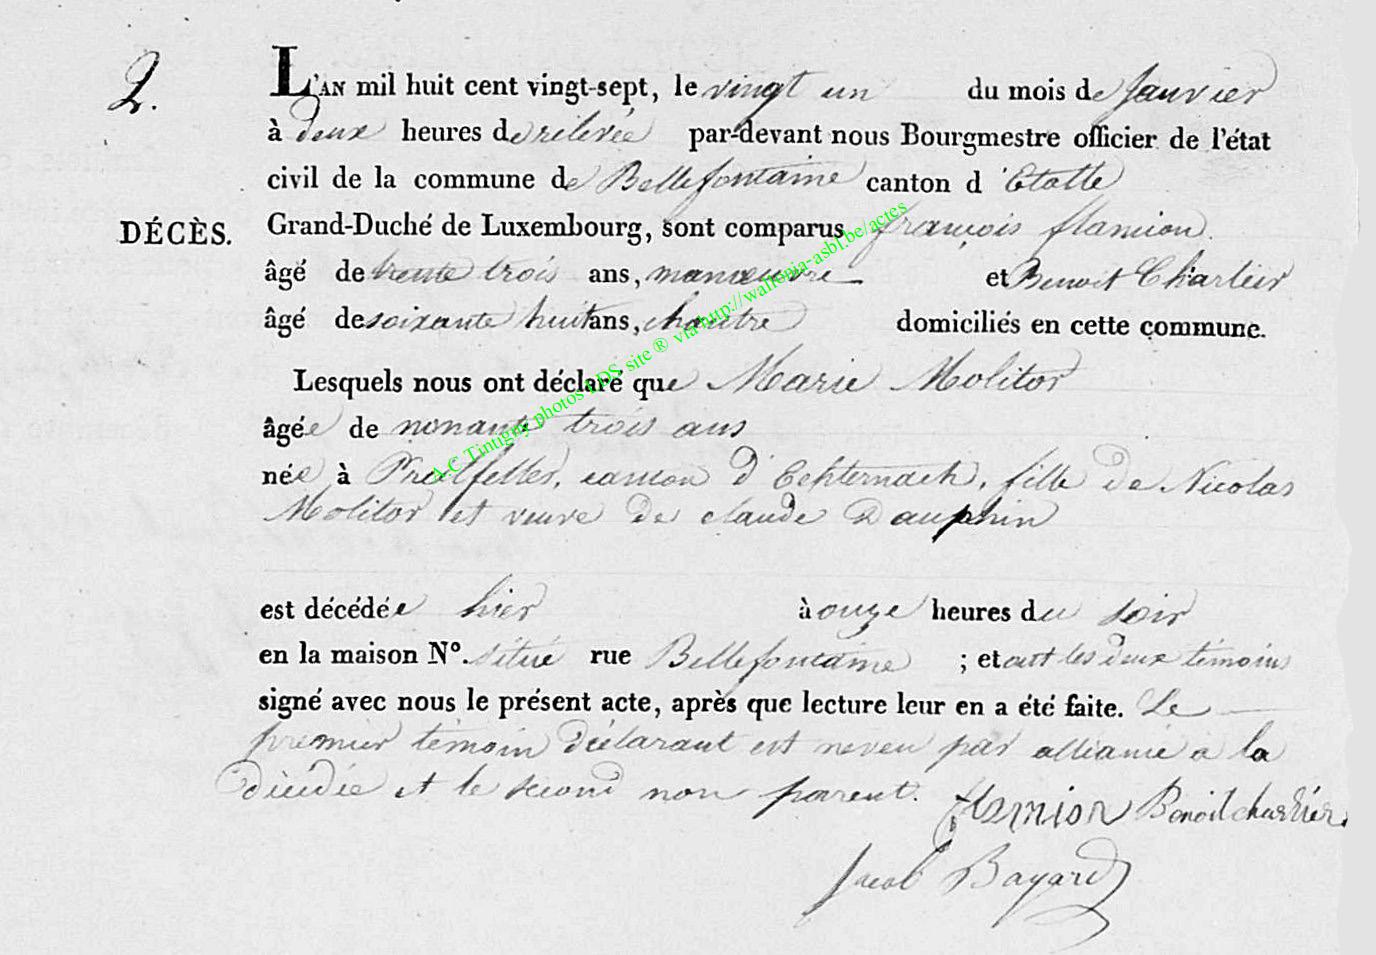 2.
L'AN mil huit cent vingt-sept, le vingt un du mois de Janvier
à deux heures de rélevée par-devant nous Bourgmestre officier de l'état
civil de la commune de Bellefontaine canton d'Etalle
DÉCÈS.
Grand-Duché de Luxembourg, sont comparus françois flamion
âgé de trente trois ans, manœuvre et Benoit Charlier
âgé de soixante huit ans, chantre domiciliés en cette commune.
Lesquels nous ont déclaré que Marie Molitor
âgée de nonante trois ans
née à canton d'Echternach, fille de Nicolas
Molitor et veuve de claude Dauphin
est décédée hier à onze heures du soir
en la maison N°. situé rue Bellefontaine ; et ont les deux témoins
signé avec nous le présent acte, après que lecture leur en a été faite. Le
premier témoin déclarant est neveu par alliance a la
dècédée et le second non parent. flamion Benoit charlier
Jacob Bayard
A-C Tintigny photos LDS site ® via http://wallonia-asbl.be/actes